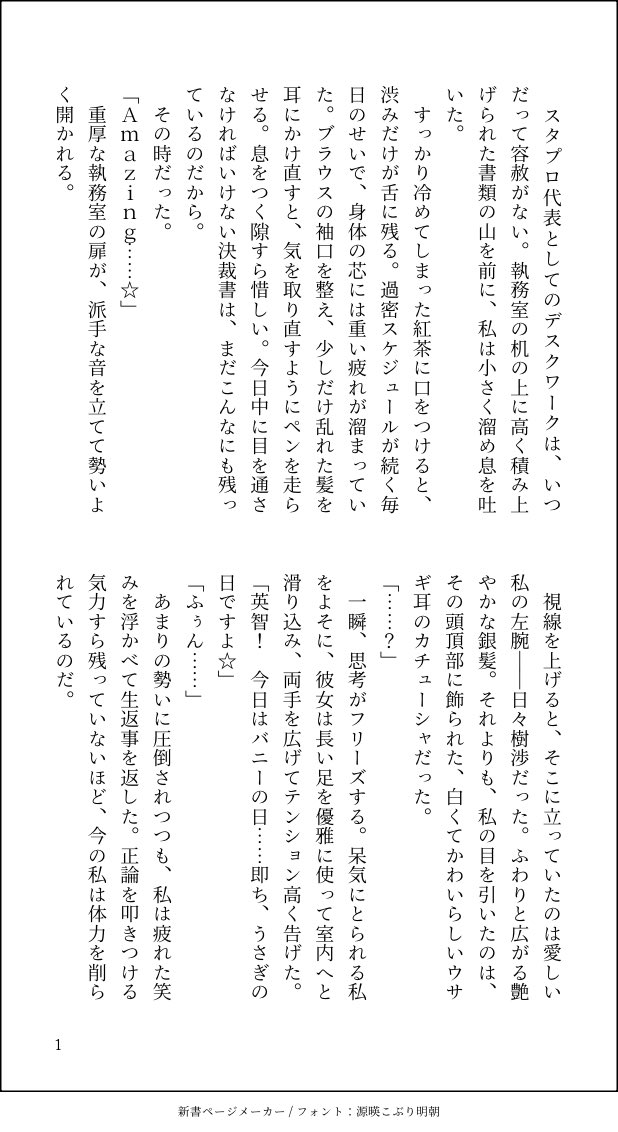 スタプロ代表としてのデスクワークは、いつ
だって容赦がない。執務室の机の上に高く積み上
げられた書類の山を前に、私は小さく溜め息を吐
いた。
　すっかり冷めてしまった紅茶に口をつけると、
渋みだけが舌に残る。過密スケジュールが続く毎
日のせいで、身体の芯には重い疲れが溜まってい
た。ブラウスの袖口を整え、少しだけ乱れた髪を
耳にかけ直すと、気を取り直すようにペンを走ら
せる。息をつく隙すら惜しい。今日中に目を通さ
なければいけない決裁書は、まだこんなにも残っ
ているのだから。
　その時だった。
「Ａｍａｚｉｎｇ……☆」
　重厚な執務室の扉が、派手な音を立てて勢いよ
く開かれる。
　視線を上げると、そこに立っていたのは愛しい
私の左腕――日々樹渉だった。ふわりと広がる艶
やかな銀髪。それよりも、私の目を引いたのは、
その頭頂部に飾られた、白くてかわいらしいウサ
ギ耳のカチューシャだった。
「……？」
　一瞬、思考がフリーズする。呆気にとられる私
をよそに、彼女は長い足を優雅に使って室内へと
滑り込み、両手を広げてテンション高く告げた。
「英智！　今日はバニーの日……即ち、うさぎの
日ですよ☆」
「ふぅん……」
　あまりの勢いに圧倒されつつも、私は疲れた笑
みを浮かべて生返事を返した。正論を叩きつける
気力すら残っていないほど、今の私は体力を削ら
れているのだ。
1
新書ページメーカー / フォント：源暎こぶり明朝